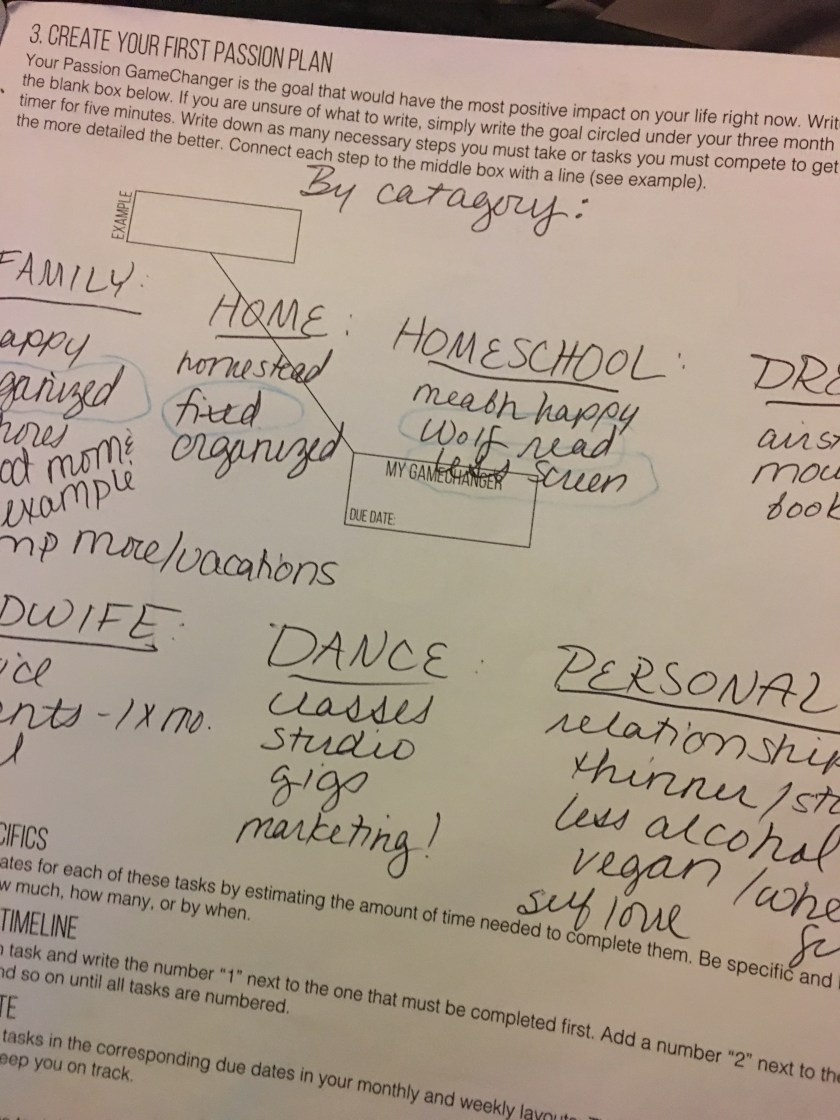 3. CREATE YOUR FIRST PASSION PLAN
Your Passion GameChanger is the goal that would have the most positive impact on your life right now. Writ
the blank box below. If you are unsure of what to write, simply write the goal circled under your three month
timer for five minutes. Write down as many necessary steps you must take or tasks you must compete to get
the more detailed the better. Connect each step to the middle box with a line (see example).
By catagory:
EXAMPLE
FAMILY:
appy
ganized
hores
example
mp more/vacations
HOME:
homestead
fixed
organized
HOMESCHOOL:
happy
Wolf read
screen
MY GAMECHANGER
DUE DATE:
DRE
airst
mou
book
DWIFE:
ice
ents - 1 x mo.
l
DANCE:
classes
studio
gigs
marketing!
PERSONAL
relationship
thinner / str
less alcohol
vegan / whe
self love
CIFICS
ates for each of these tasks by estimating the amount of time needed to complete them. Be specific and
w much, how many, or by when.
TIMELINE
task and write the number "1" next to the one that must be completed first. Add a number "2" next to the
nd so on until all tasks are numbered.
TE
tasks in the corresponding due dates in your monthly and weekly layouts.
eep you on track.